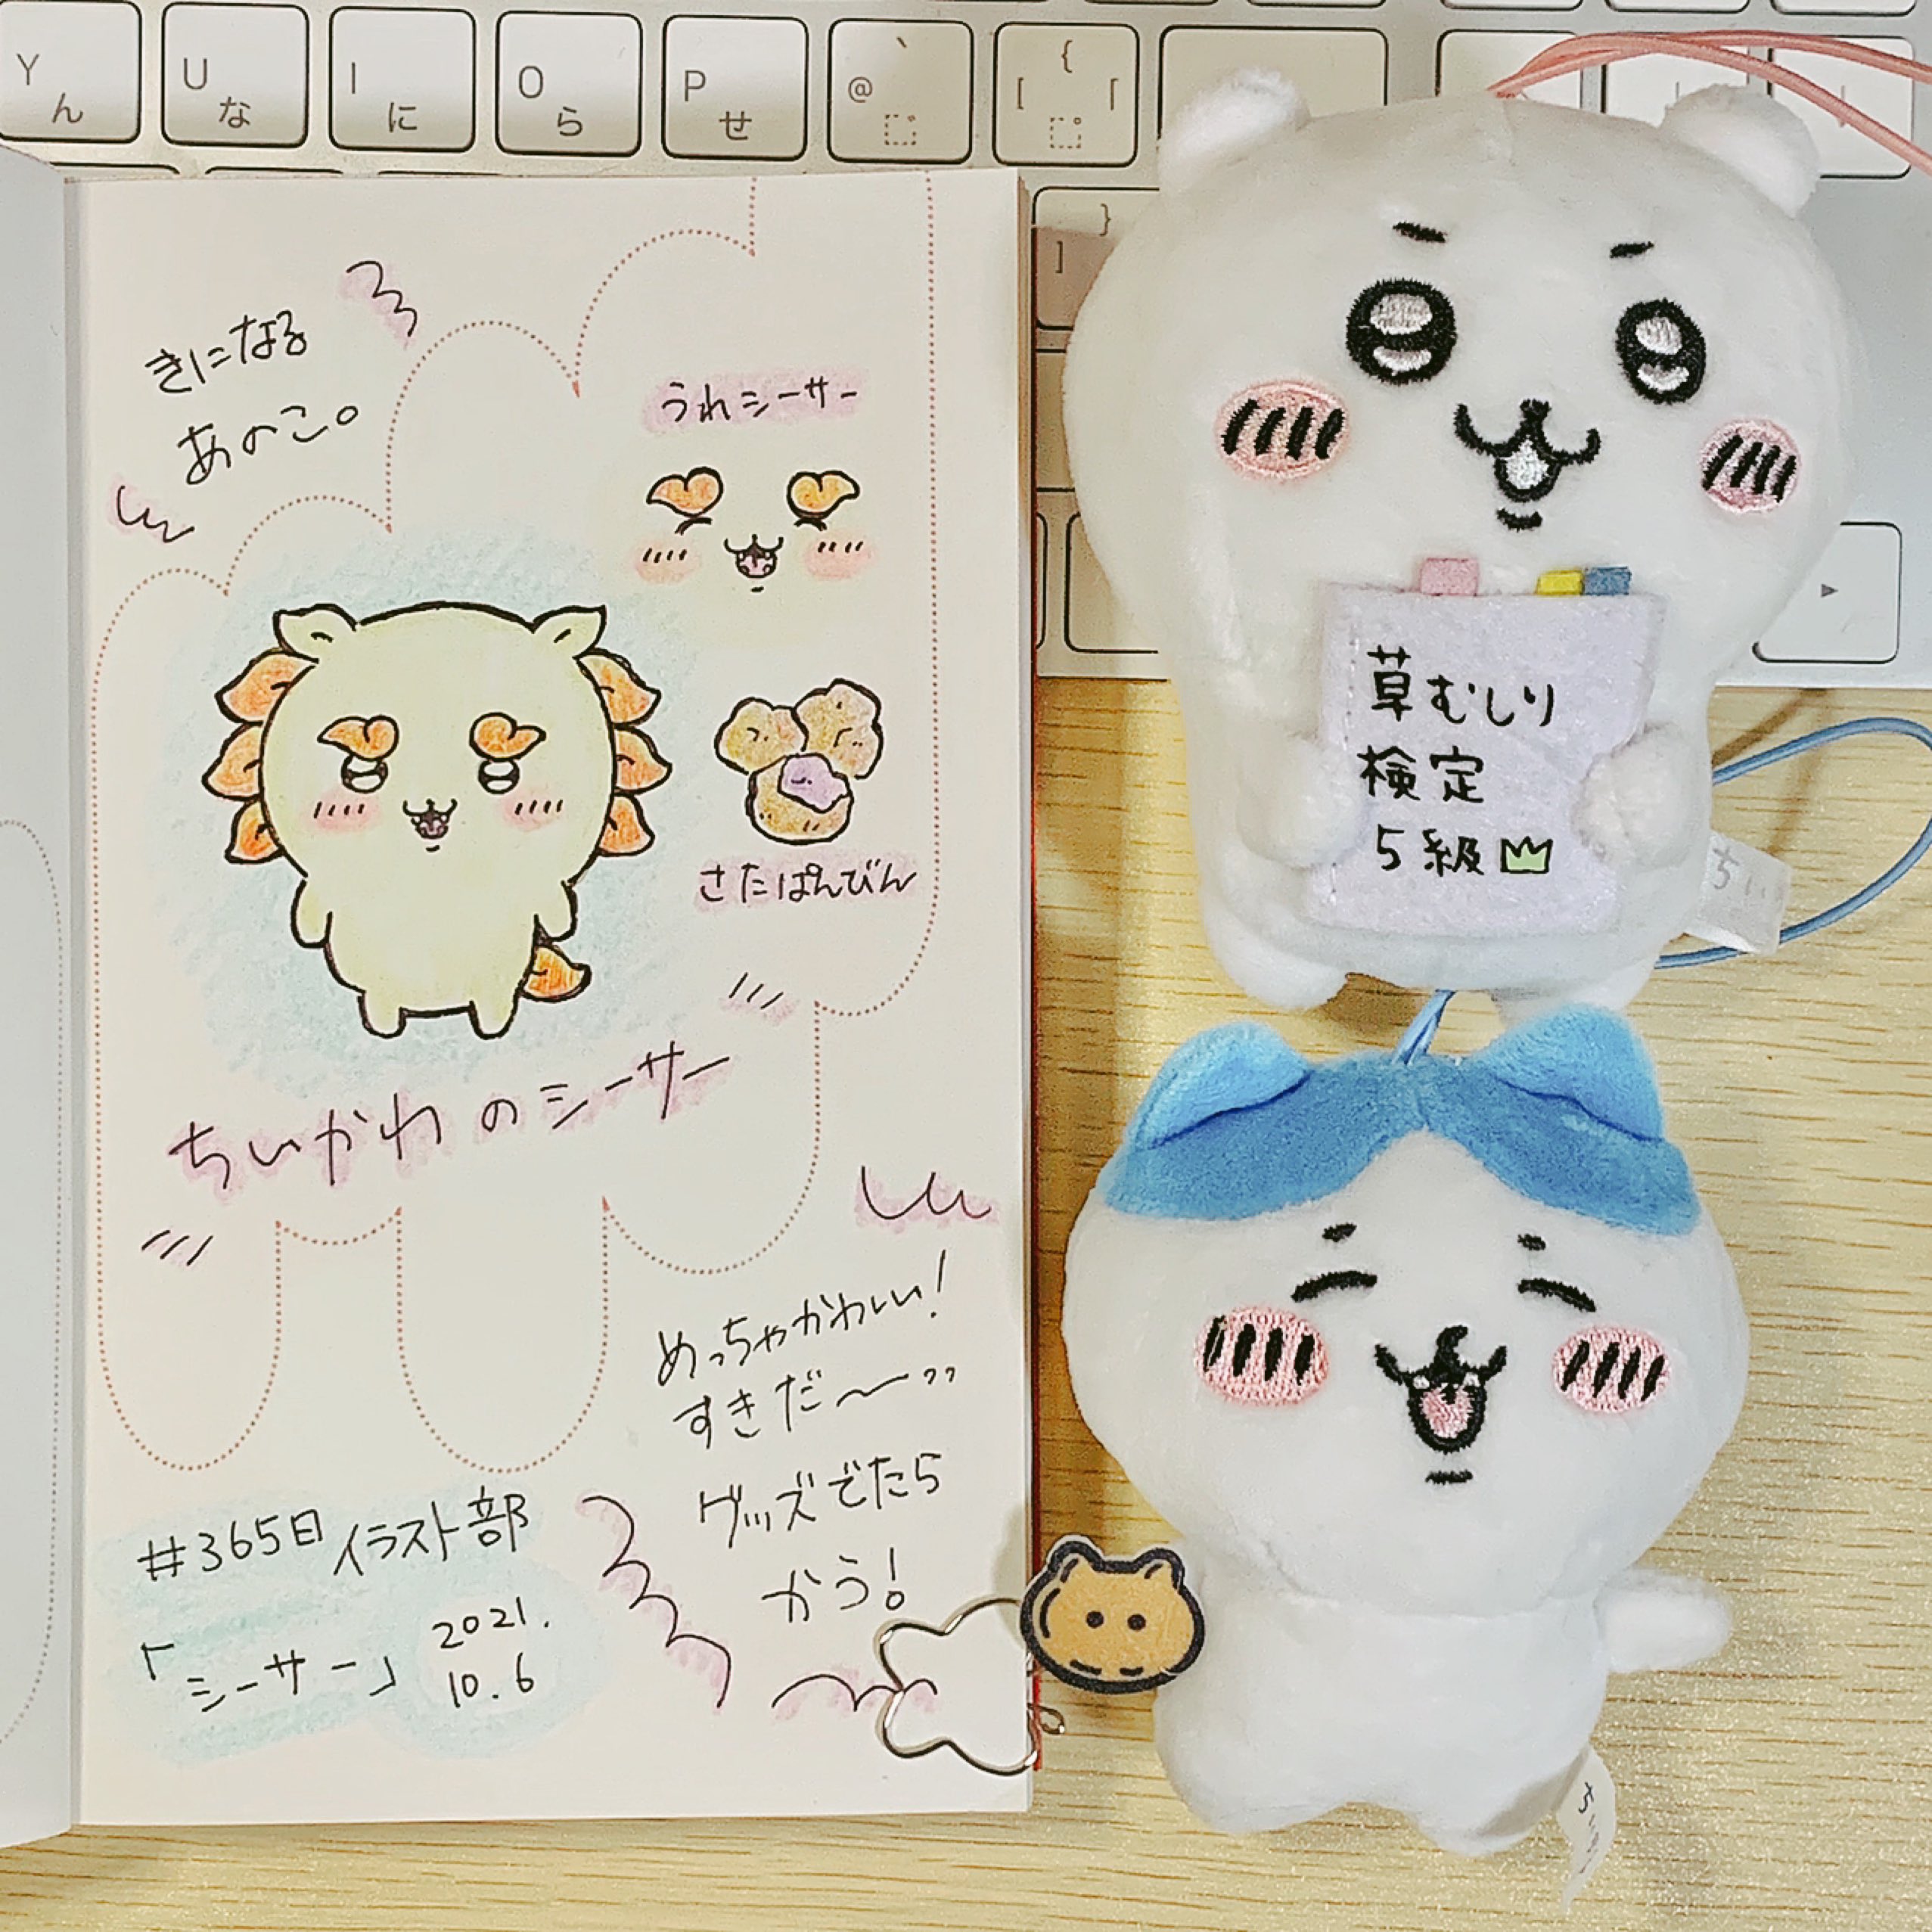 Y
ん
U
な
I
に
O
ら
P
せ
@
{
[
「
}
]
きになる
あのこ。
うれシーサー
さたぱんびん
ちいかわのシーサー
めっちゃかわいい!
すきだ〜"
グッズでたら
かう!
#365日イラスト部
「シーサー」
2021.
10.6
草むしり
検定
5級